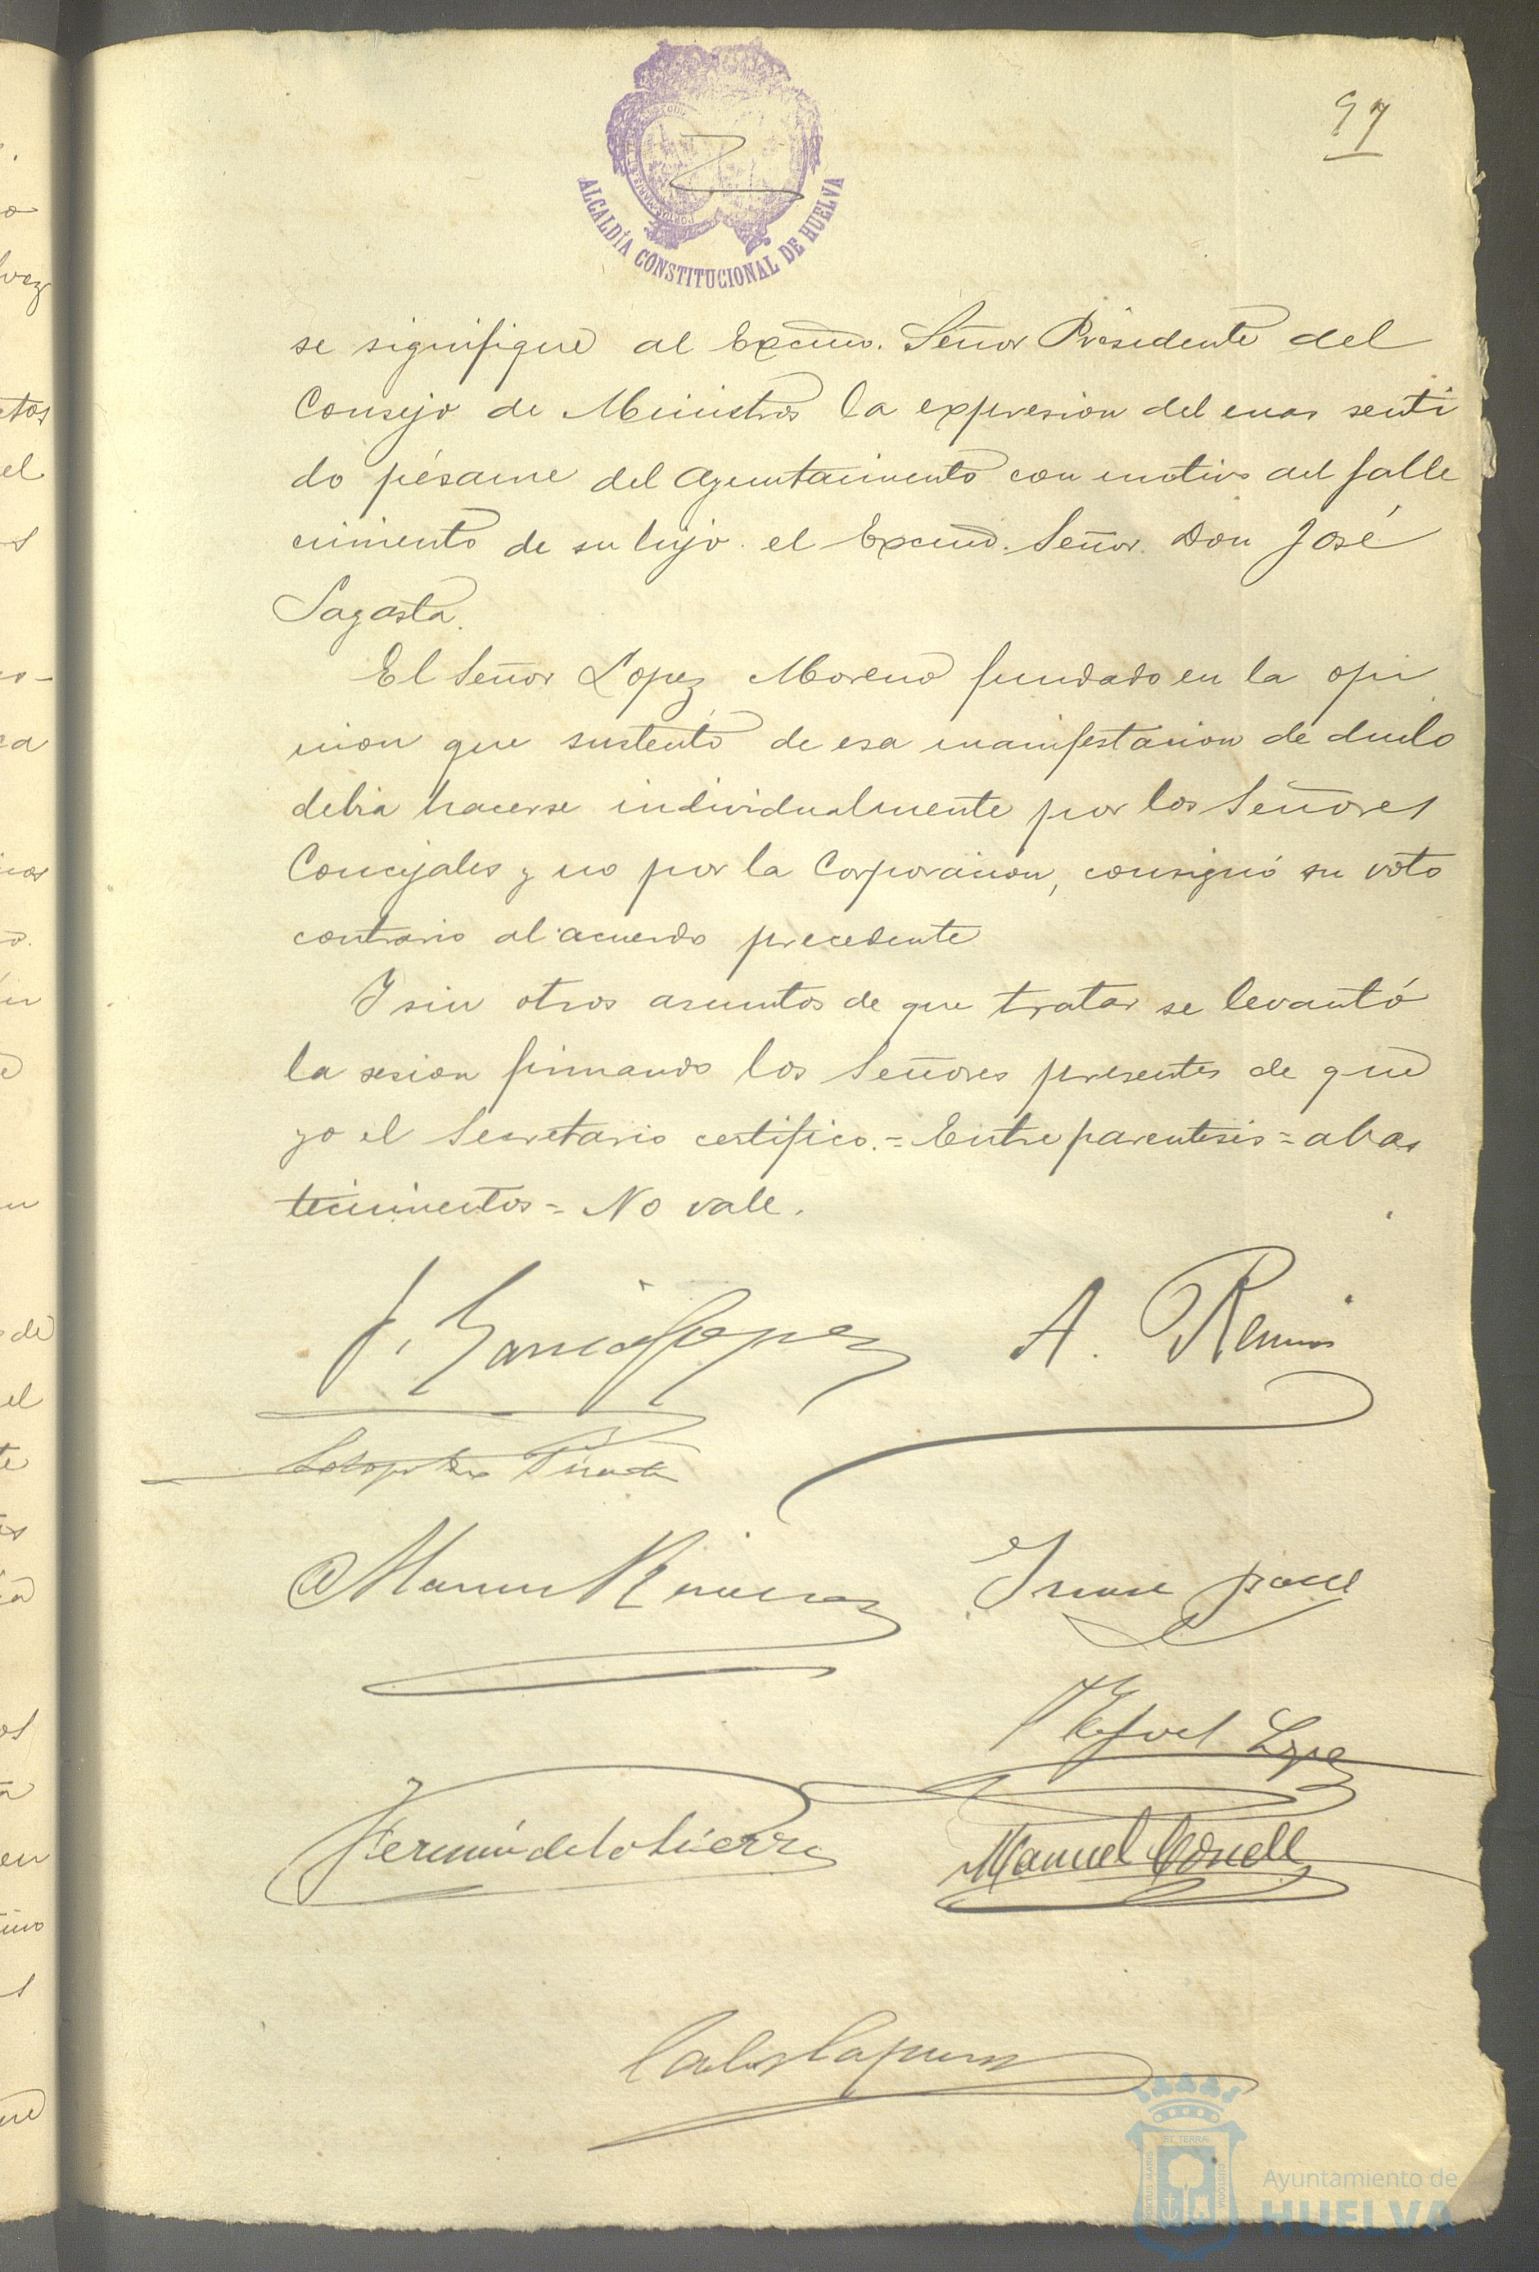 97
ALCALDÍA CONSTITUCIONAL DE HUELVA
se signifique al Excmo. Señor Presidente del
Consejo de Ministros la expresion del mas senti
do pésame del Ayuntamiento con motivo del falle
cimiento de su hijo el Excmo. Señor Don José
Sagasta.
El Señor Lopez Moreno fundado en la opi
nion que sustentó de esa manifestacion de duelo
debia hacerse individualmente por los Señores
Concejales y no por la Corporacion, consignó su voto
contrario al acuerdo precedente
Y sin otros asuntos de que tratar se levantó
la sesion firmando los Señores presentes de que
yo el Secretario certifico.= Entre parentesis = abas
tecimientos = No vale.
J. Garcia Lopez
A. Ramos
Manuel Lopez
Fermín de la Sierra
Manuel
Ayuntamiento de
HUELVA